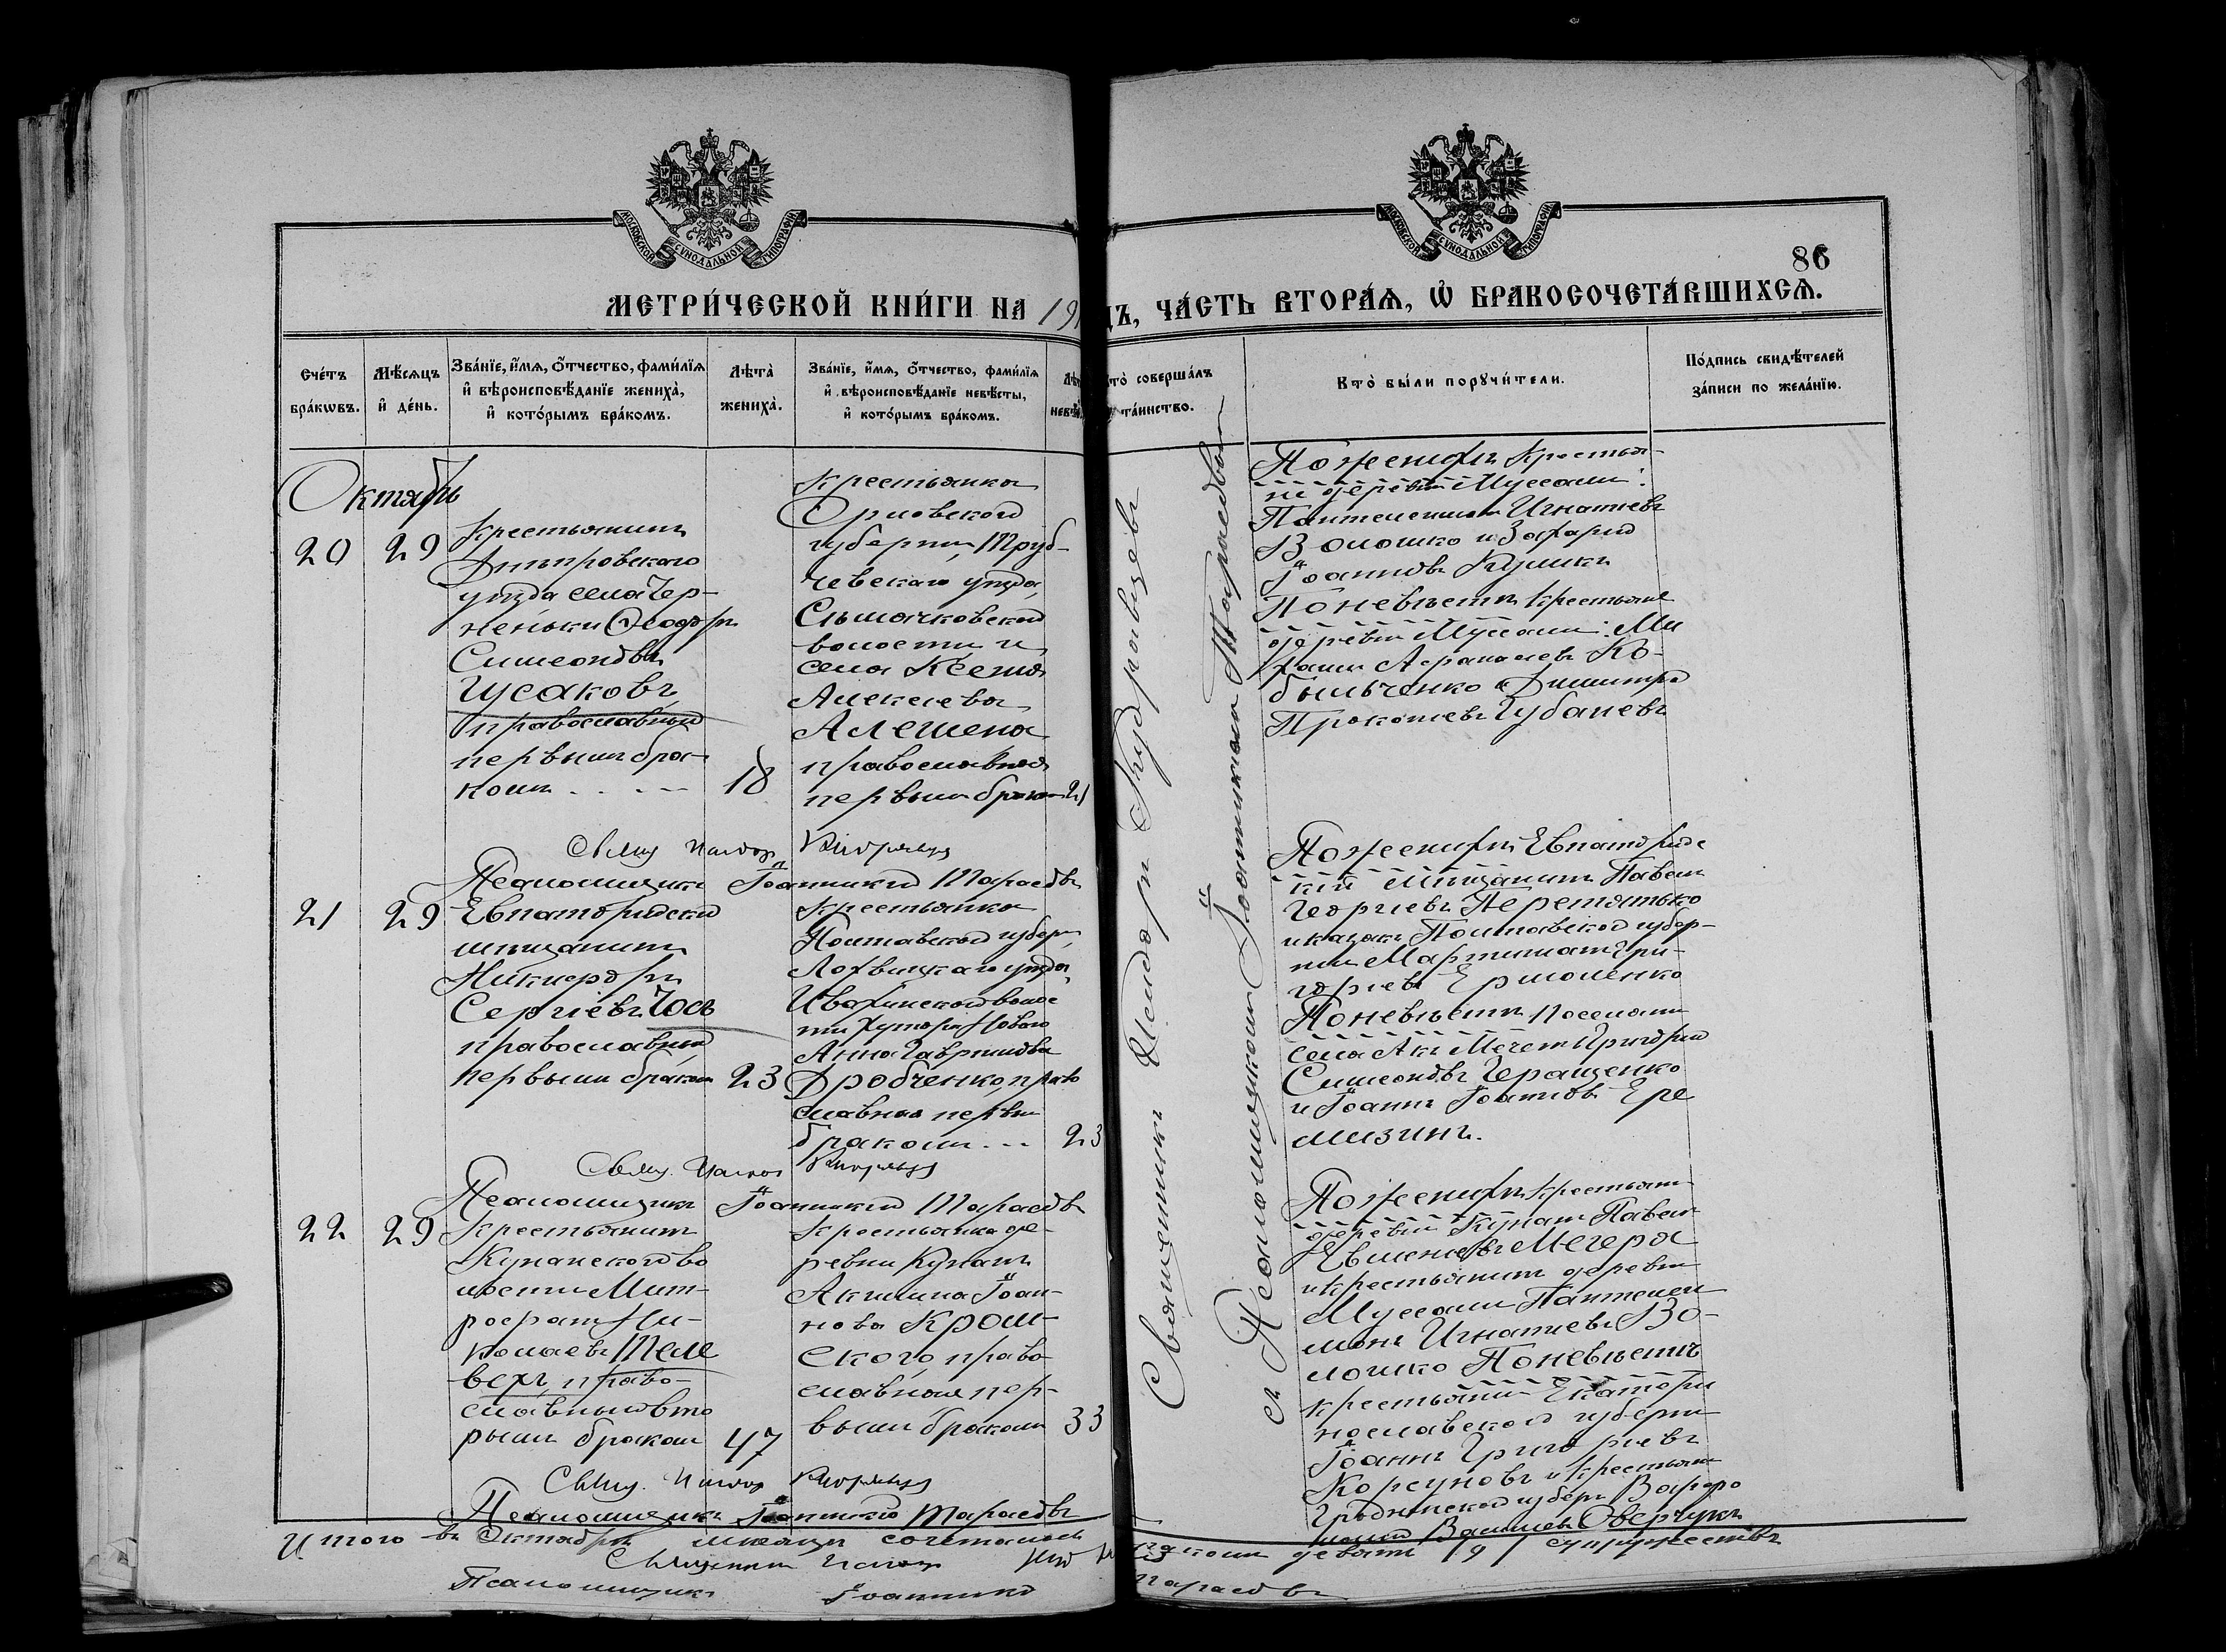 МОСКОВСКОЙ СѴНОДАЛЬНОЙ ТИПОГРАФІИ
МОСКОВСКОЙ СѴНОДАЛЬНОЙ ТИПОГРАФІИ
86
МЕТРИ́ЧЕСКОЙ КНИ́ГИ НА 191
ДЪ, ЧА́СТЬ ВТОРА́Ѧ, Ѡ БРАКОСОЧЕТА́ВШИХСѦ.
Сче́тъ бра́кѡвъ.
Мѣ́сяцъ и де́нь.
Зва́нїе, и́мѧ, ѻ́тчество, фами́лїѧ
и вѣроисповѣ́данїе жениха̀,
и кото́рымъ бра́комъ.
Лѣта̀ жениха̀.
Зва́нїе, и́мѧ, ѻ́тчество, фами́лїѧ
и вѣроисповѣ́данїе невѣ́сты,
и кото́рымъ бра́комъ.
то̀ соверша́лъ
та́инство.
Кто̀ бы́ли порꙋчи́тели.
По́дпись свидѣ́телей
за́писи по жела́нїю.
Октябрь
20 29
Крестьянинъ
Днѣпровскаго
уѣзда села Чер-
неньки Ѳеодоръ
Симеоновъ
Усаковъ,
православный
первымъ бра-
комъ 18
Крестьянка
Орловской
губерніи, Труб-
чевскаго уѣзда,
волости и
села Ксенія
Алексѣева
Алешена
православная
первымъ бракомъ 21
Священникъ Исидоръ Кудрявцевъ
съ Псаломщикомъ Іоанникіемъ Тарасовымъ
По женихѣ Крестья-
не деревни Муссали:
Пантелеимонъ Игнатіевъ
Волошко и Захарій
Іоанновъ Куликъ
По невѣстѣ крестьяне
деревни Муссали: Ми
хаилъ Аѳанасіевъ Ко-
быльченко и Димитрій
Прокопіевъ Губаневъ
Свящ. Исидор Кудрявцев
Псаломщикъ Іоанникій Тарасовъ
21 29
Евпаторійскій
мѣщанинъ
Никифоръ
Сергіевъ Чосъ
православный
первымъ бракомъ 23
Крестьянка
Полтавской губерн.
Лохвицкаго уѣзда,
волос
ти хутора Новаго
Анна Гаврилова
Дробченко, право
славная первым
бракомъ 23
По женихѣ Евпаторійс
кій мѣщанинъ Павелъ
Георгіевъ Перетятько
и казакъ Полтавской губер-
ніи Мартиніанъ Гри-
горіевъ Ермоленко
По невѣстѣ поселяне
села Акъ Мечетъ Григорій
Симеоновъ Геращенко
и Іоаннъ Іоанновъ Ере
мизинъ.
Свящ. Исидор Кудрявцев
Псаломщикъ Іоанникій Тарасовъ
22 29
Крестьянинъ
Кунанской во
лости Мит-
рофанъ Ни-
колаевъ Теле
вехъ, право-
славный вто
рымъ бракомъ 47
Крестьянка де-
ревни Кунанъ
Акилина Іоан-
нова Кром-
ского, право
славная пер-
вымъ бракомъ 33
По женихѣ крестьян
деревни Кунанъ Павелъ
Евменіевъ Мегера
и крестьянинъ деревни
Муссали Пантелеи
монъ Игнатіевъ Во-
лошко По невѣстѣ
крестьянинъ Екатери
нославской губерніи
Іоаннъ Григоріевъ
Корсуновъ и крестьян
Гродненской губерн. Варѳо
ломей Василіевъ Оверчукъ
Свящ. Исидор Кудрявцев
Псаломщикъ Іоанникій Тарасовъ
Итого въ Октябрѣ мѣсяцѣ сочеталось
ракомъ девять /9/ супружествъ
Священник Исидор
Псаломщикъ Іоанникій
Тарасовъ